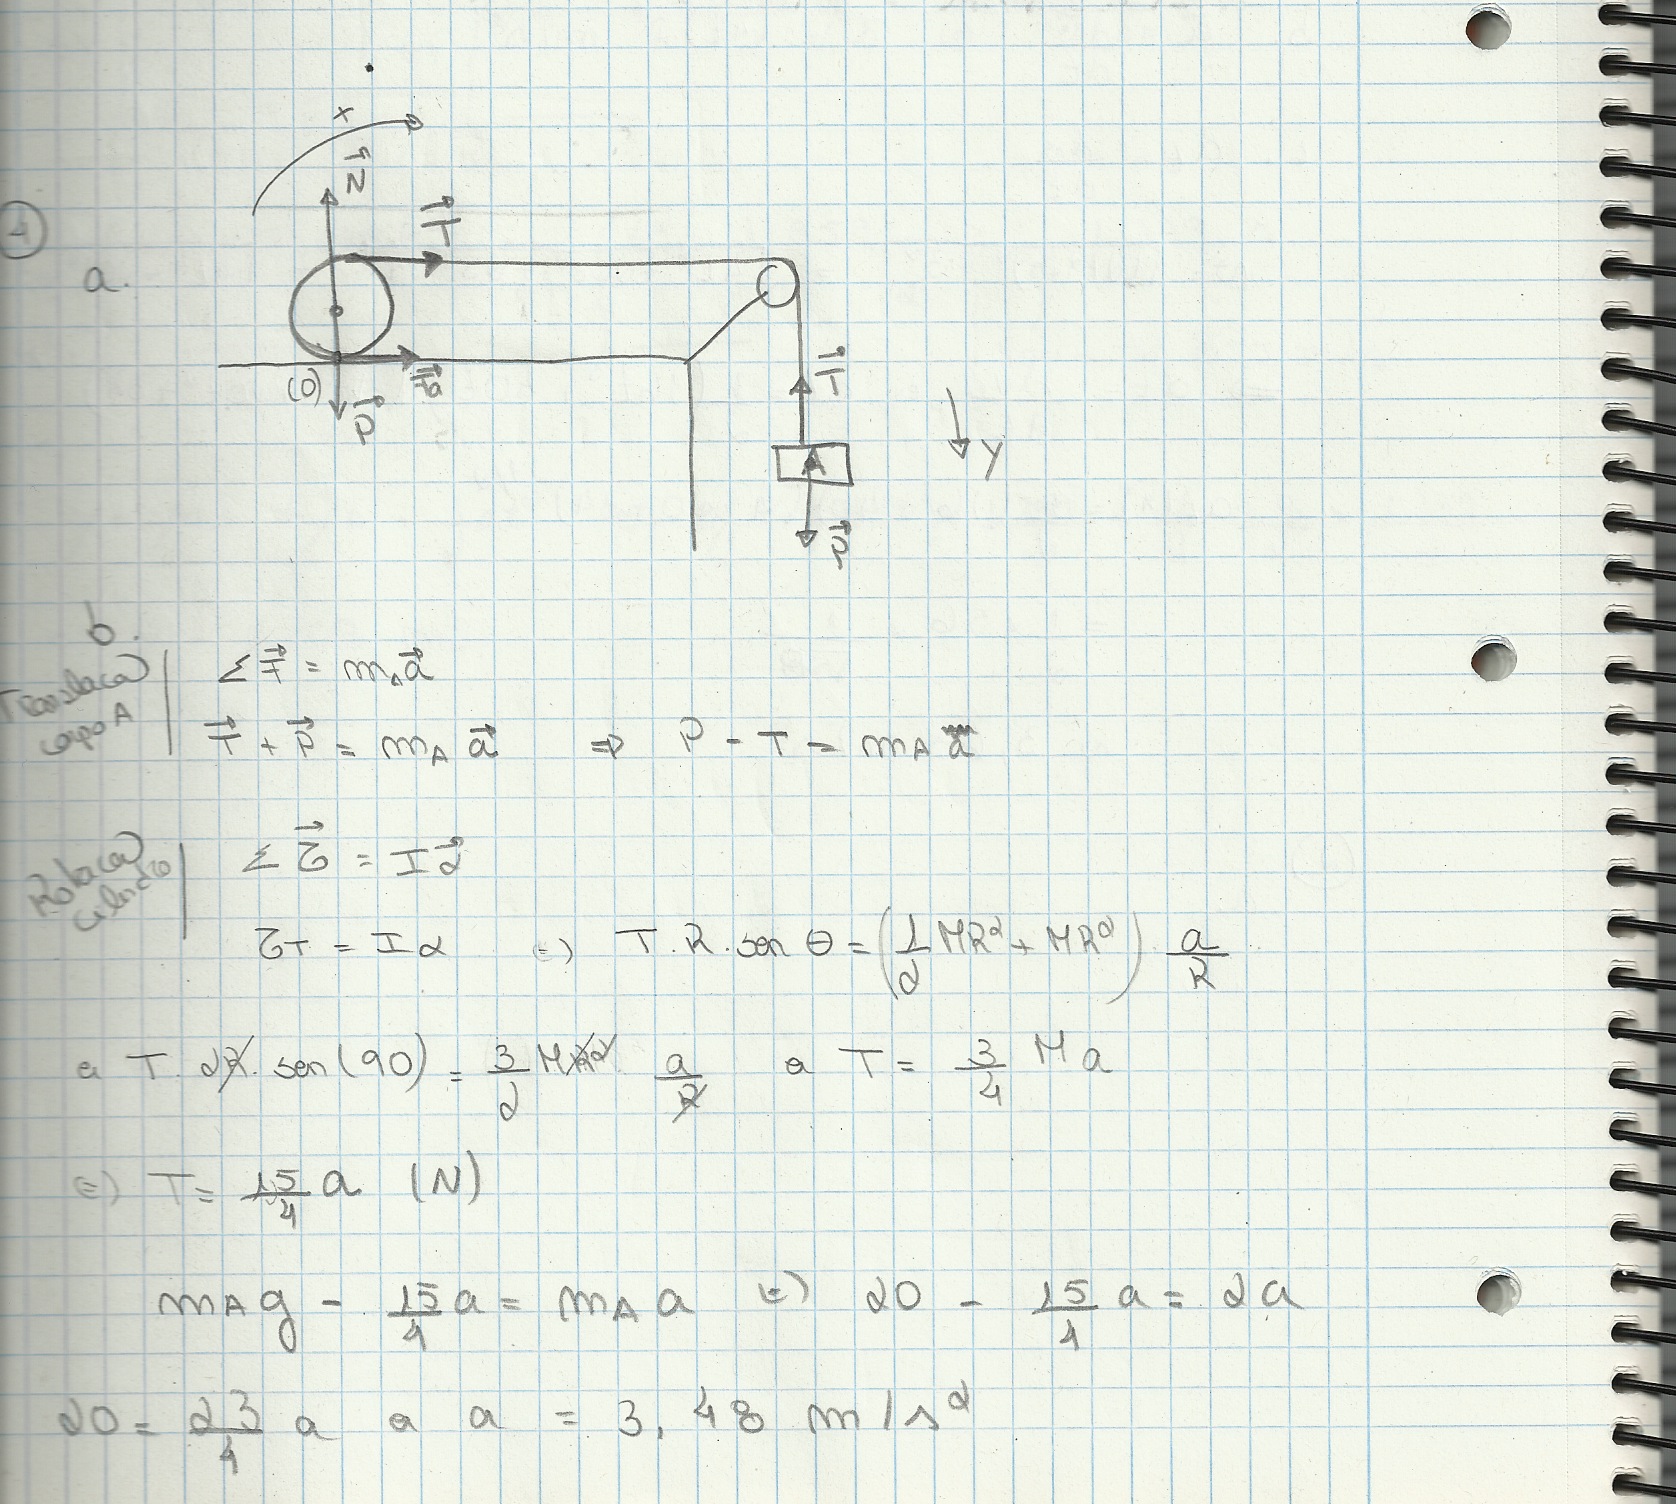 x
N⃗
T⃗
4
a.
(O)
F⃗a
P⃗
T⃗
A
Y
P⃗
b.
Translação
corpo A
Σ F⃗ = m_A a⃗
T⃗ + P⃗ = m_A a⃗ ⇒ P - T = m_A a
Rotação
cilindro
Σ τ⃗ = I α⃗
τ_T = I α ⇔ T . R . sen θ = (1/2 MR² + MR²) a/R
⇔ T . 2R . sen(90) = 3/2 MR² a/R ⇔ T = 3/4 M a
⇔ T = 15/4 a (N)
m_A g - 15/4 a = m_A a ⇔ 20 - 15/4 a = 2a
20 = 23/4 a ⇔ a = 3,48 m/s²